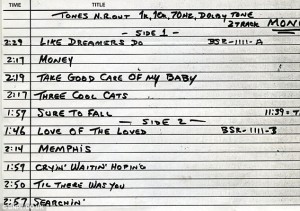 TONES N.R. OUT 1K, 10K, 70HZ, DOLBY TONE
2 TRACK MON
- SIDE 1 -
2:29 LIKE DREAMERS DO BSR-1111-A
2:17 MONEY
2:19 TAKE GOOD CARE OF MY BABY
2:17 THREE COOL CATS
1:57 SURE TO FALL 11:39 = T
- SIDE 2 -
1:46 LOVE OF THE LOVED BSR-1111-B
2:14 MEMPHIS
1:59 CRYIN' WAITIN' HOPING
2:50 TIL THERE WAS YOU
2:57 SEARCHIN'